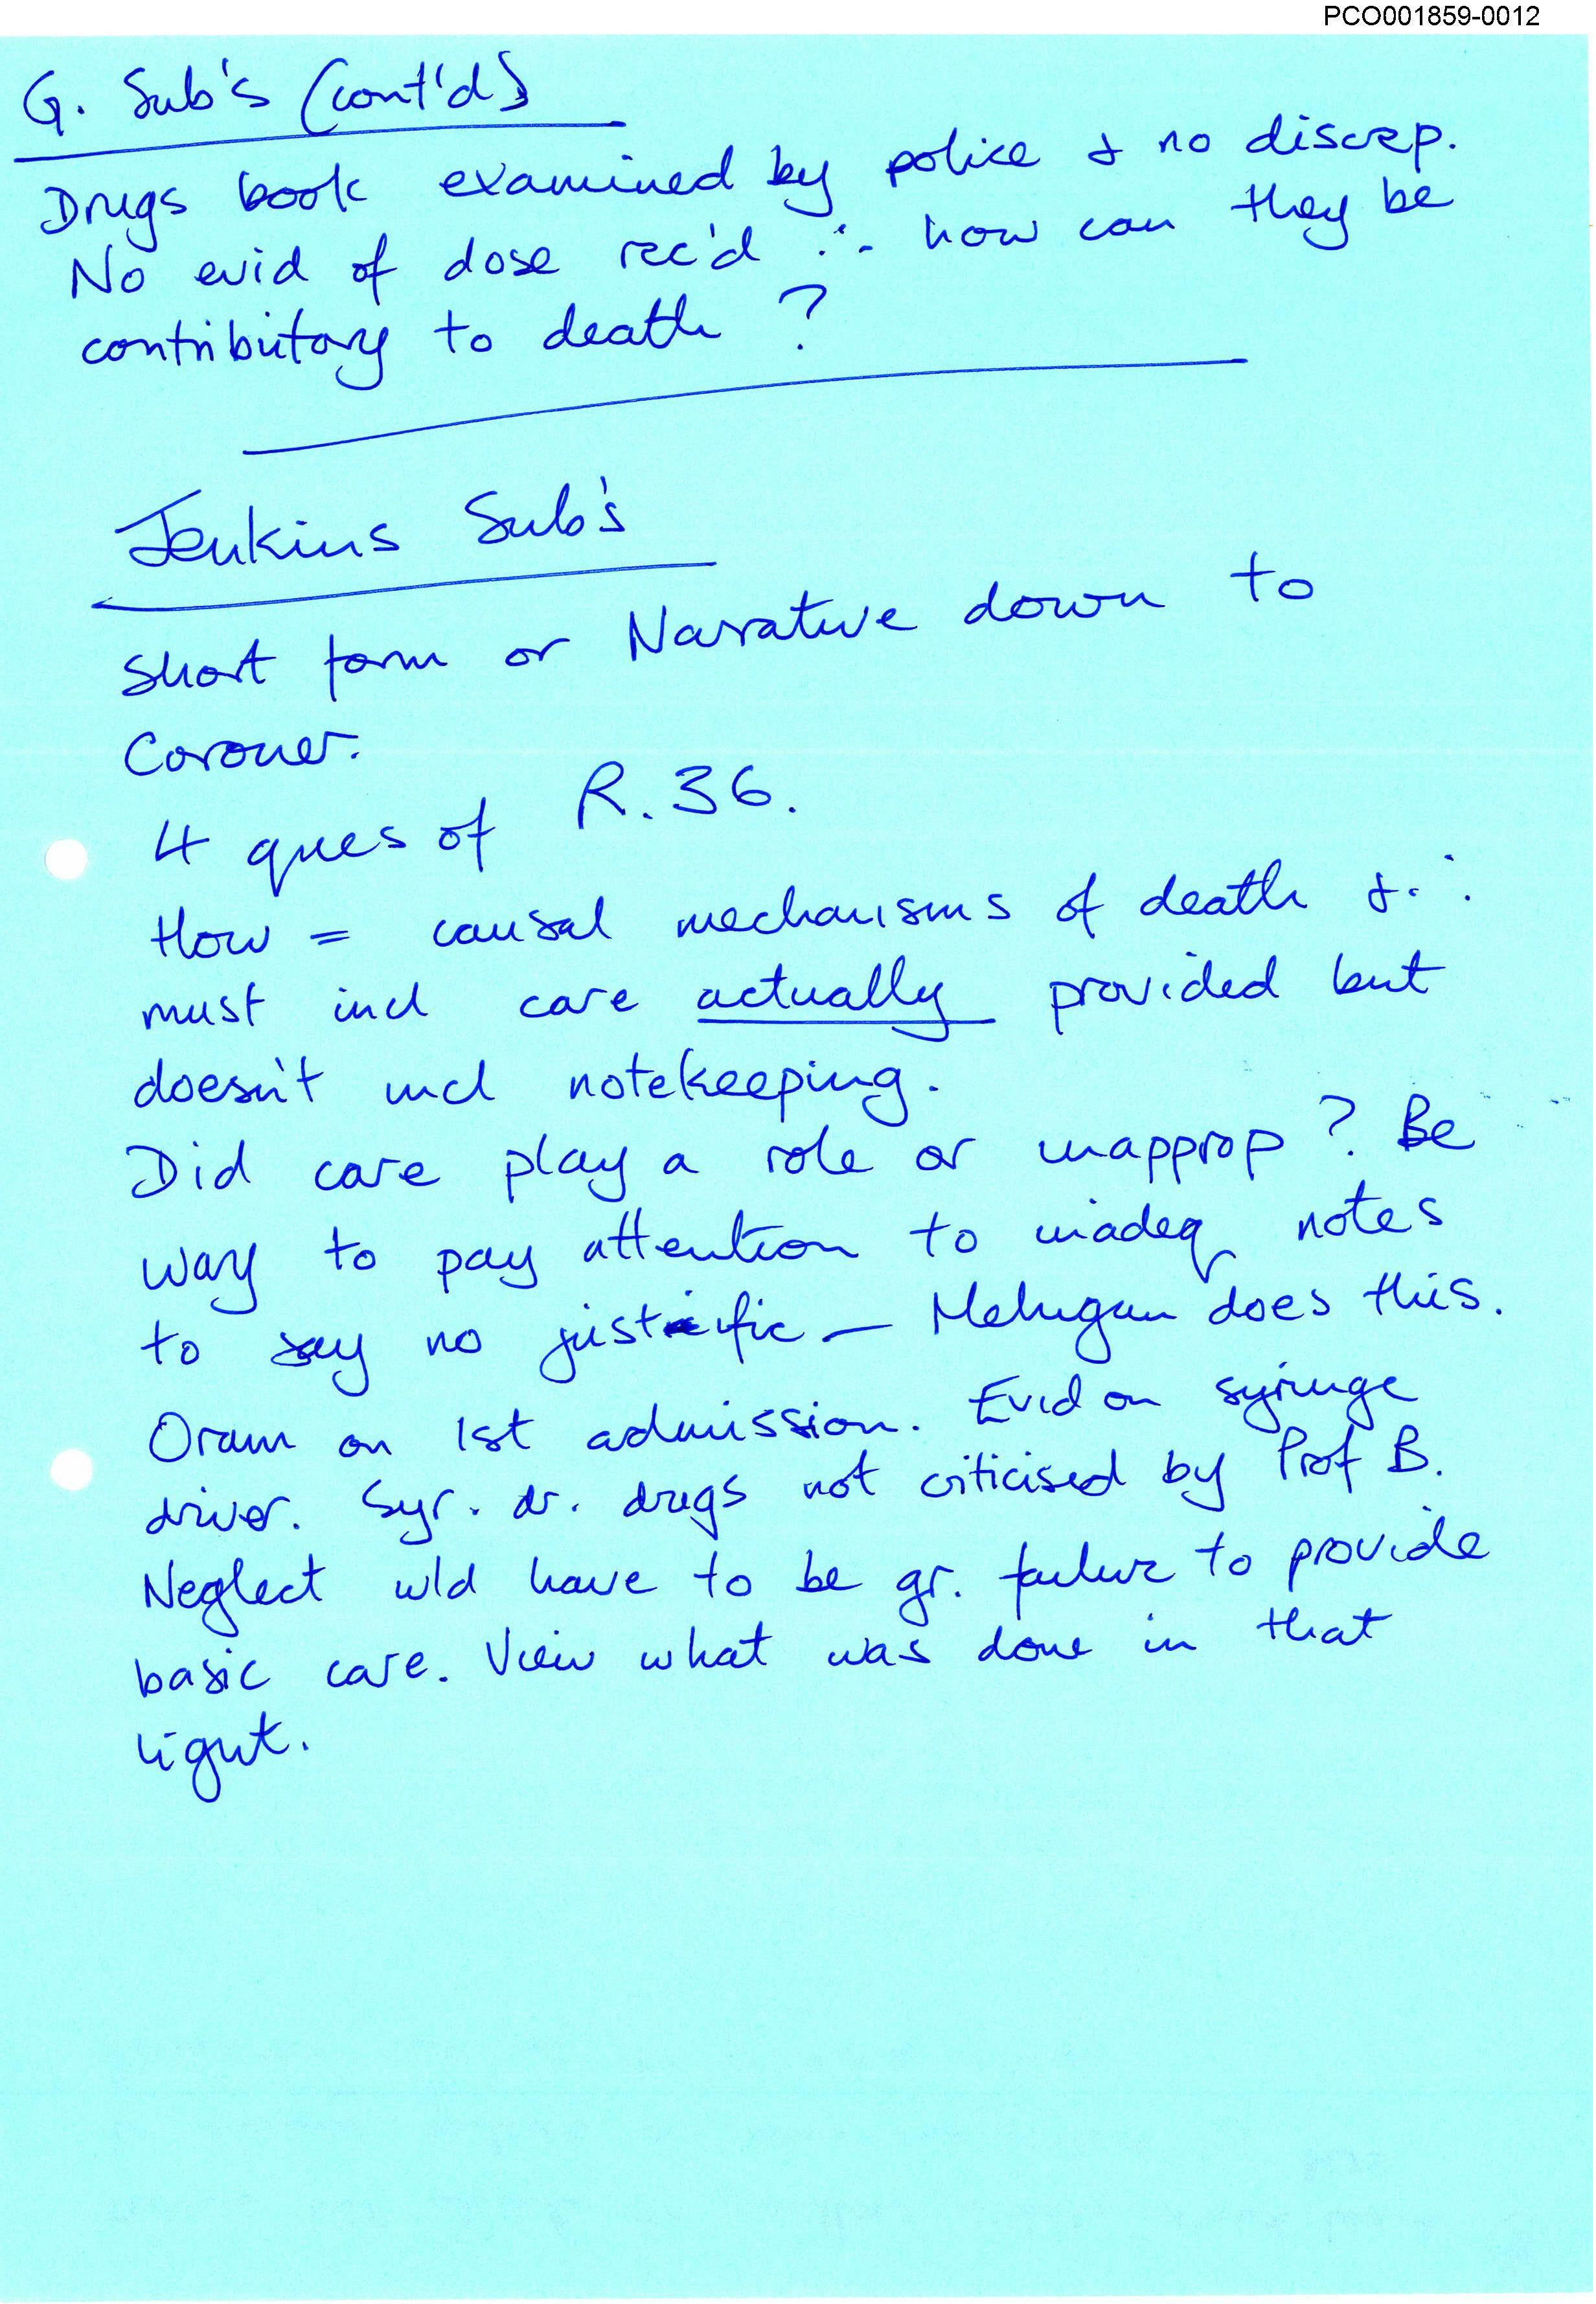 PCO001859-0012
G. Sub's (cont'd)
Drugs book examined by police & no discrep.
No evid of dose rec'd ∴ how can they be
contributory to death ?
Jenkins Sub's
Short form or Narrative down to
Coroner.
4 ques of R.36.
How = causal mechanisms of death & ∴
must incl care actually provided but
doesn't incl notekeeping.
Did care play a role or inapprop ? Be
way to pay attention to inadeq notes
to say no justific — Mehigan does this.
Oram on 1st admission. Evid on syringe
driver. Syr. dr. drugs not criticised by Prof B.
Neglect wld have to be gr. failure to provide
basic care. View what was done in that
light.